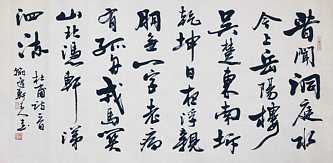 昔聞洞庭水
今上岳陽樓
吳楚東南坼
乾坤日夜浮親
朋無一字老病
有孤舟戎馬關
山北憑軒涕
泗流
杜甫詩一首